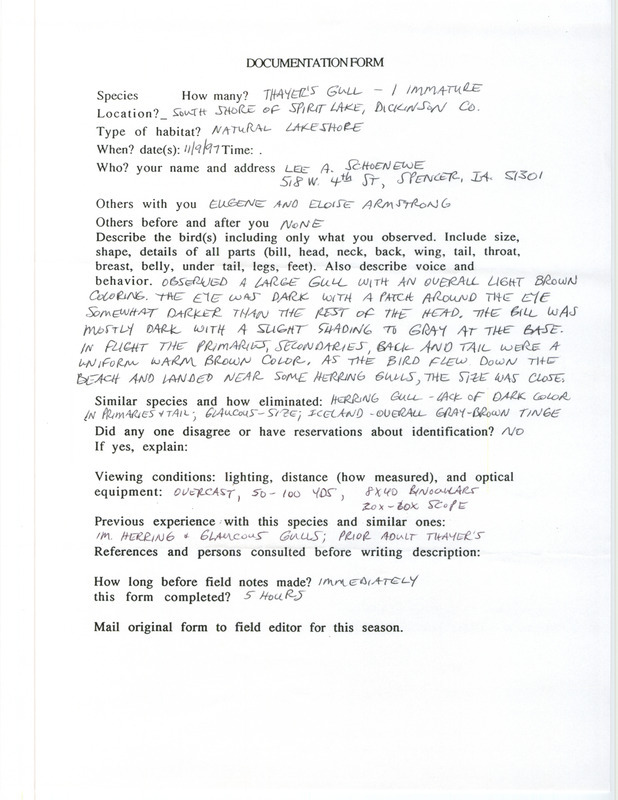 DOCUMENTATION FORM
Species How many? THAYER'S GULL - 1 IMMATURE
Location?_ SOUTH SHORE OF SPIRIT LAKE, DICKINSON CO.
Type of habitat? NATURAL LAKESHORE
When? date(s): 11/9/97 Time: .
Who? your name and address LEE A. SCHOENEWE
518 W. 4th ST, SPENCER, IA. 51301
Others with you EUGENE AND ELOISE ARMSTRONG
Others before and after you NONE
Describe the bird(s) including only what you observed. Include size,
shape, details of all parts (bill, head, neck, back, wing, tail, throat,
breast, belly, under tail, legs, feet). Also describe voice and
behavior. OBSERVED A LARGE GULL WITH AN OVERALL LIGHT BROWN
COLORING. THE EYE WAS DARK WITH A PATCH AROUND THE EYE
SOMEWHAT DARKER THAN THE REST OF THE HEAD. THE BILL WAS
MOSTLY DARK WITH A SLIGHT SHADING TO GRAY AT THE BASE.
IN FLIGHT THE PRIMARIES, SECONDARIES, BACK AND TAIL WERE A
UNIFORM WARM BROWN COLOR. AS THE BIRD FLEW DOWN THE
BEACH AND LANDED NEAR SOME HERRING GULLS, THE SIZE WAS CLOSE.
Similar species and how eliminated: HERRING GULL - LACK OF DARK COLOR
IN PRIMARIES & TAIL; GLAUCOUS-SIZE; ICELAND-OVERALL GRAY-BROWN TINGE
Did any one disagree or have reservations about identification? NO
If yes, explain:
Viewing conditions: lighting, distance (how measured), and optical
equipment: OVERCAST, 50-100 YDS, 8X40 BINOCULARS
20X-60X SCOPE
Previous experience with this species and similar ones:
IM. HERRING & GLAUCOUS GULLS; PRIOR ADULT THAYER'S
References and persons consulted before writing description:
How long before field notes made? IMMEDIATELY
this form completed? 5 HOURS
Mail original form to field editor for this season.